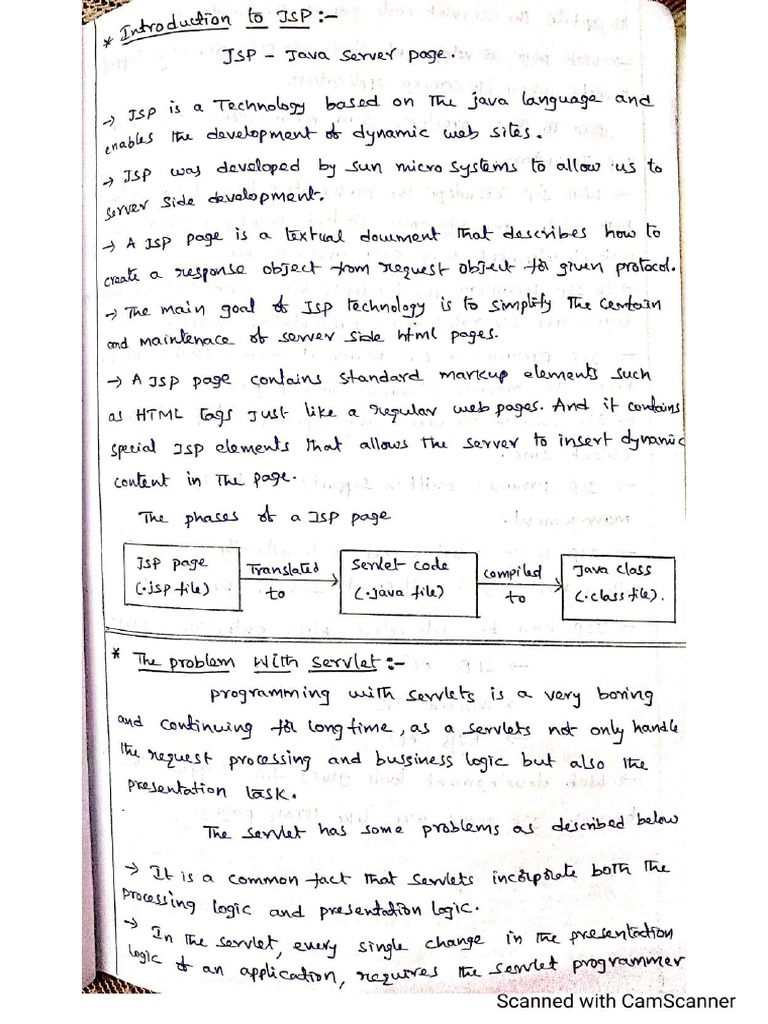 * Introduction to JSP:-
JSP - Java Server page.
→ JSP is a Technology based on The java language and
enables the development of dynamic web sites.
→ JSP was developed by sun micro systems to allow us to
server side development.
→ A JSP page is a textual document that describes how to
create a response object from request object for given protocol.
→ The main goal of JSP technology is to simplify the certain
and maintenace of server side html pages.
→ A JSP page contains standard markup elements such
as HTML tags just like a regular web pages. And it contains
special JSP elements that allows the server to insert dynamic
content in the page.
The phases of a JSP page
JSP page Translated Servlet code compiled Java class
(.jsp file) to (.java file) to (.class file).
* The problem with servlet:-
programming with servlets is a very boring
and continuing for long time, as a servlets not only handle
the request processing and bussiness logic but also the
presentation task.
The servlet has some problems as described below
→ It is a common fact that servlets incorporate both the
processing logic and presentation logic.
→ In the servlet, every single change in the presentation
logic of an application, requires the servlet programmer
Scanned with CamScanner